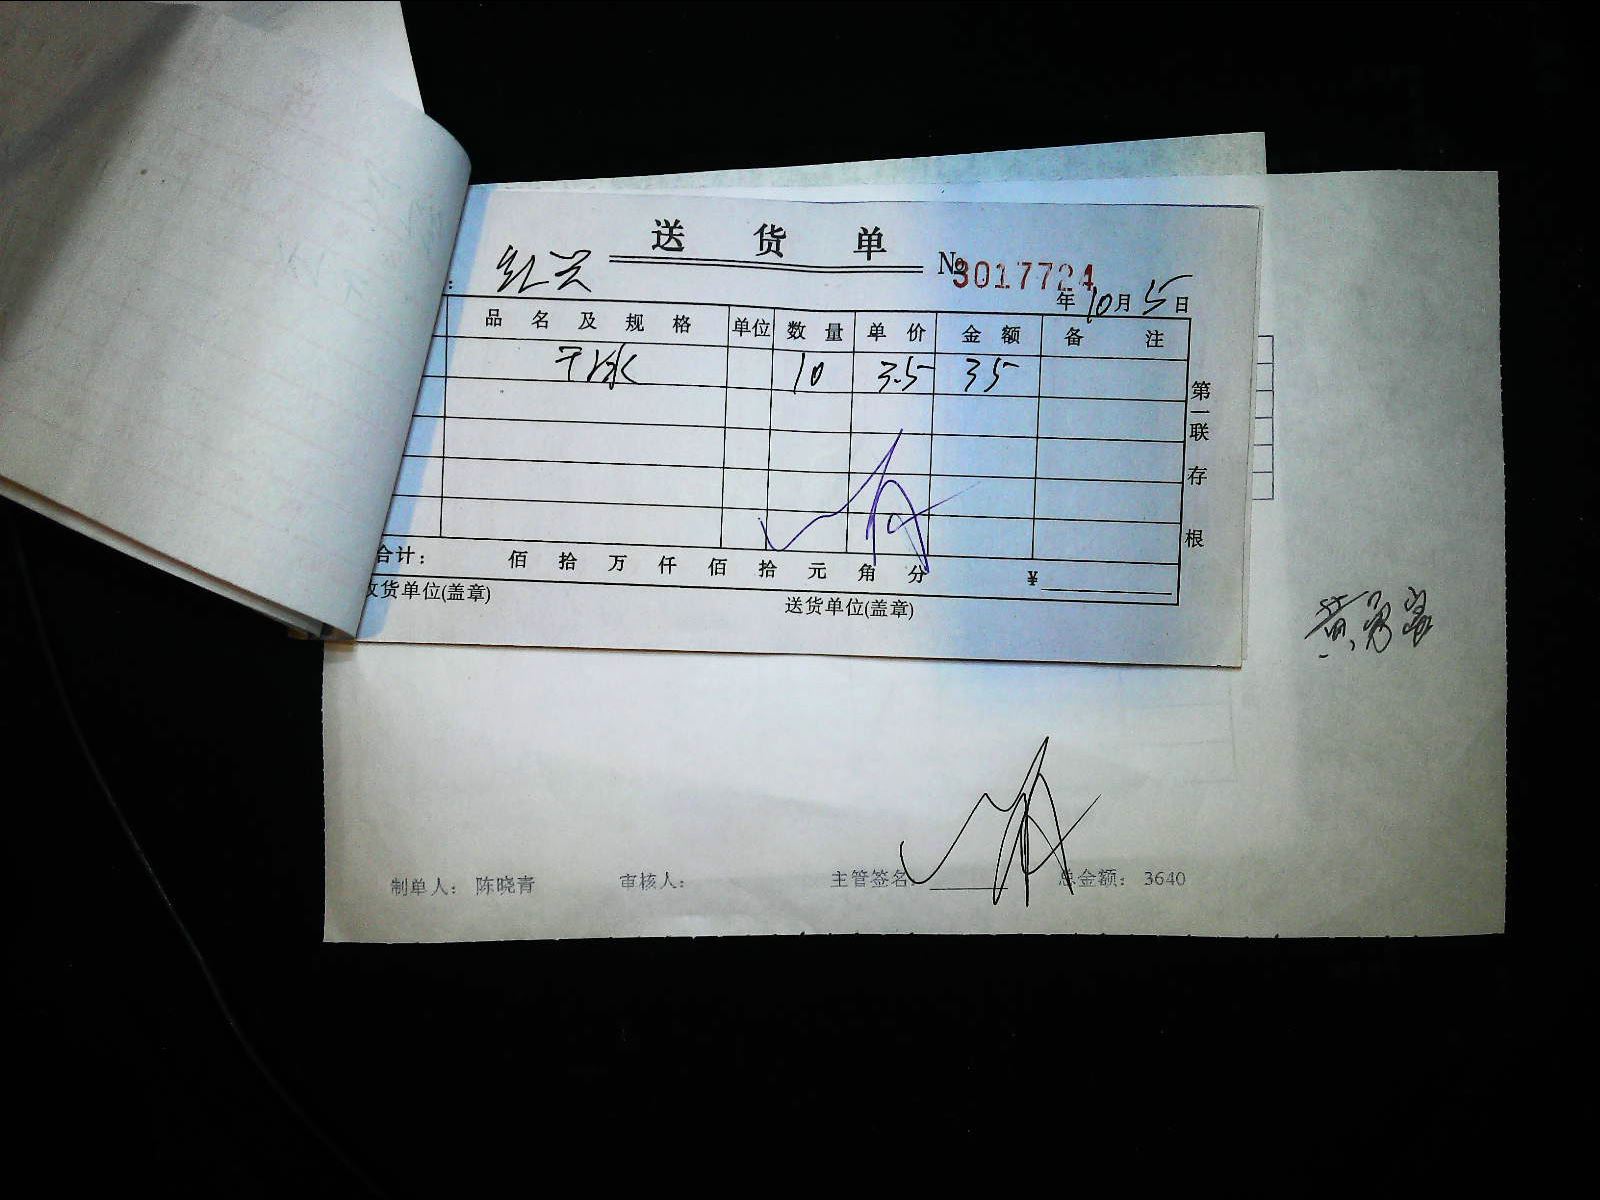 送 货 单
: 红兴
№ 3017724
年 10 月 5 日
品 名 及 规 格 单位 数 量 单 价 金 额 备 注
干冰 10 3.5 35
第一联 存根
合计: 佰 拾 万 仟 佰 拾 元 角 分 ¥
收货单位(盖章) 送货单位(盖章)
制单人: 陈晓青 审核人: 主管签名: 总金额: 3640